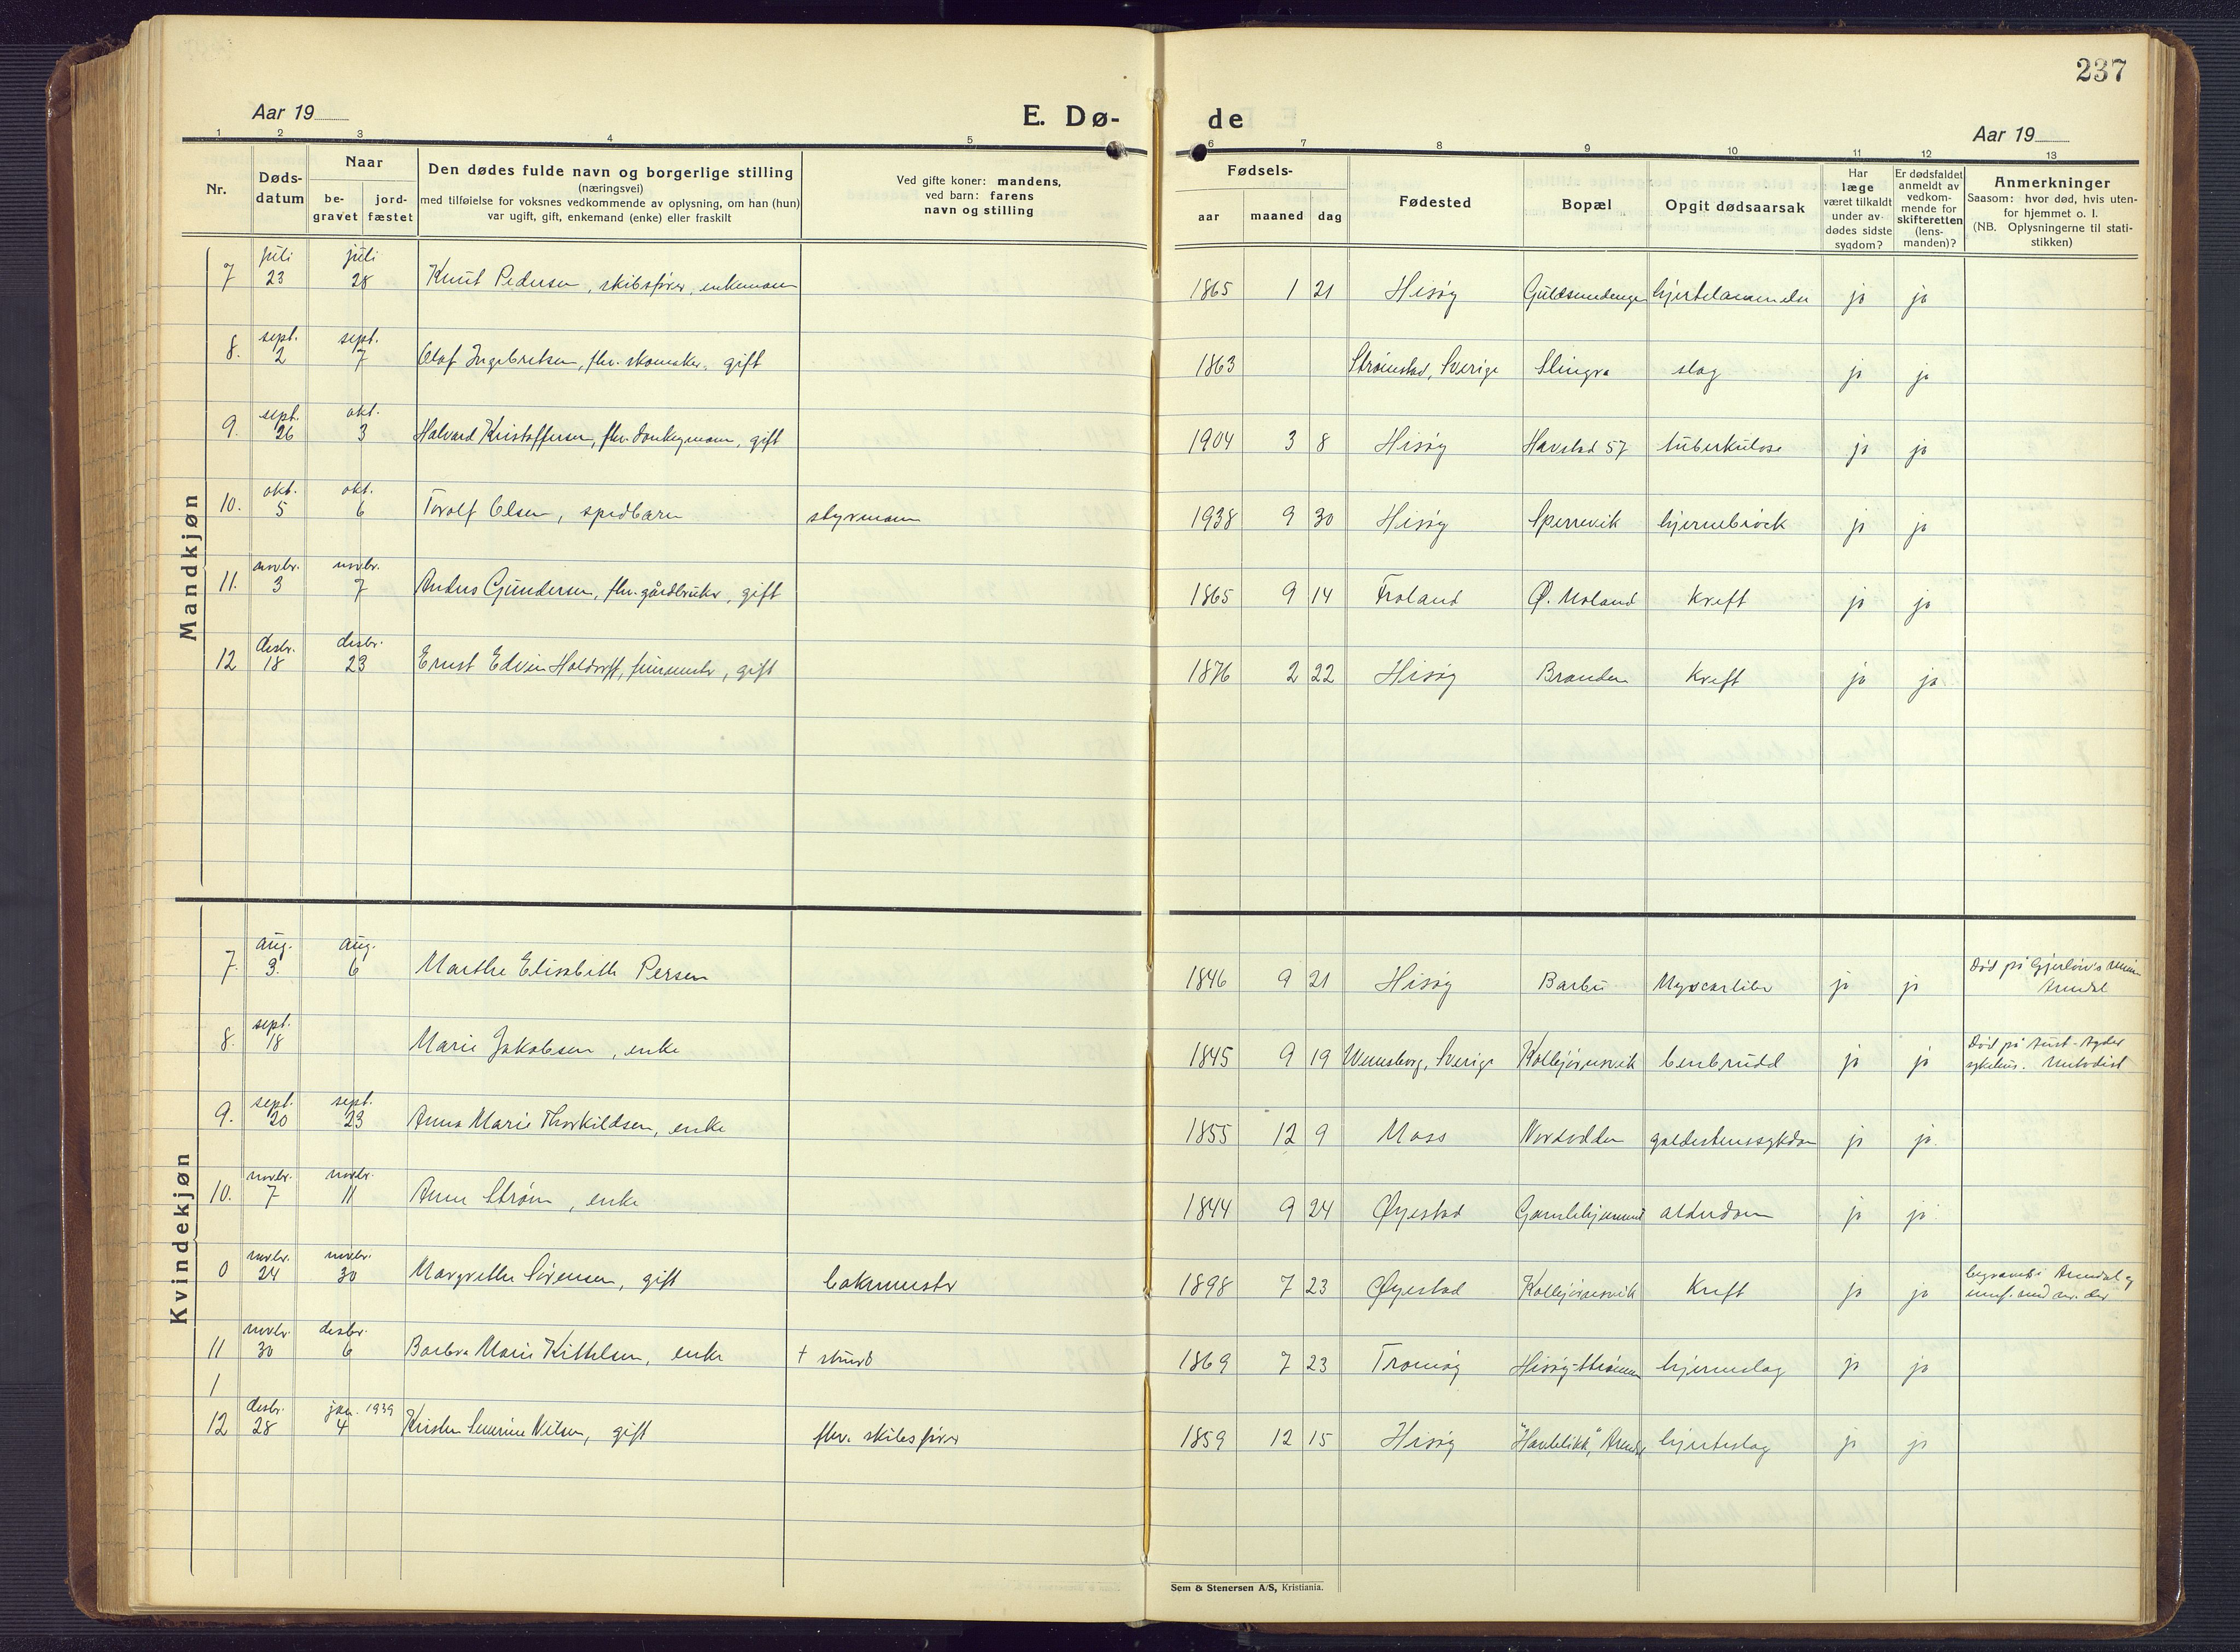 237
Aar 19 E. Dø- de Aar 19
1 2 3 4 5 6 7 8 9 10 11 12 13
Nr. Døds-datum Naar be-gravet jord-fæstet Den dødes fulde navn og borgerlige stilling (næringsvei) med tilføielse for voksnes vedkommende av oplysning, om han (hun) var ugift, gift, enkemand (enke) eller fraskilt Ved gifte koner: mandens, ved barn: farens navn og stilling Fødsels- aar maaned dag Fødested Bopæl Opgit dødsaarsak Har læge været tilkaldt under av-dødes sidste sygdom? Er dødsfaldet anmeldt av vedkom-mende for skifteretten (lens-manden)? Anmerkninger Saasom: hvor død, hvis uten-for hjemmet o. l. (NB. Oplysningerne til stati-stikken)
Mandkjøn
7 juli 23 juli 28 Knut Pedersen, skibsfører, enkemann 1865 1 21 Hisøy ja ja
8. sept. 2 sept. 7 Olaf Ingebretsen, fhv. skomaker, gift 1863 Strømstad, Sverige Slingra slag ja ja
9. sept. 26 okt. 3 Halvard Kristoffersen, fhv. donkeymann, gift 1904 3 8 Hisøy Havstad 57 tuberkulose ja ja
10. okt. 5 okt. 6 Torolf Olsen, spedbarn styrmann 1938 9 30 Hisøy Sperrevik hjernebrock ja ja
11. novbr. 3 novbr. 7 Anders Gundersen, fhv. gårdbruker, gift 1865 9 14 Froland Ø. Moland Kreft ja ja
12 desbr. 18 desbr. 23 Ernst Edvin Holdorff, gift 1876 2 22 Hisøy Branden Kreft ja ja
Kvindekjøn
7. aug. 3. aug. 6 Marthe Elisabeth Persen 1846 9 21 Hisøy Barbu ja ja Død på Gjerløw's Arendal
8. sept. 18 Marie Jakobsen, enke 1845 9 19 Wenersborg, Sverige Kolbjørnsvik benbrudd ja ja Død på Aust-Agder sykehus. Metodist
9. sept. 20 sept. 23 Anna Marie Thorkildsen, enke 1855 12 9 Moss Nordodden galdestenssykdom ja ja
10. novbr. 7 novbr. 11 Anne Strøm, enke 1844 9 24 Øyestad Gamlehjemmet alderdom ja ja
0 novbr. 24 novbr. 30 Margrethe Sørensen, gift bakermester 1898 7 23 Øyestad Kolbjørnsvik Kreft ja ja begravet i Arendal og innf. med nr. der
11 novbr. 30 desbr. 6 Barbra Marie Kittelsen, enke 1869 7 23 Tromøy Hisøy-Strømmen hjerneslag ja ja
1
12 desbr. 28 jan. 1939 4 Kristen Severine Nilsen, gift fhv. skibsfører 1859 12 15 Hisøy "Havblikk," Arendal hjerteslag ja ja
Sem & Stenersen A/S, Kristiania.